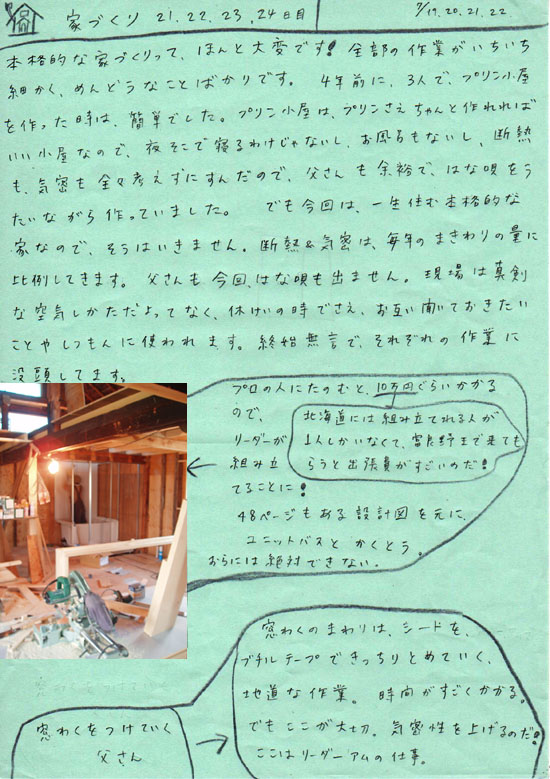 家づくり 21.22.23.24日目
7/19.20.21.22
本格的な家づくりって、ほんと大変です!全部の作業がいちいち
細かく、めんどうなことばかりです。 4年前に、3人で、プリン小屋
を作った時は、簡単でした。プリン小屋は、プリンさえちゃんと作れれば
いい小屋なので、夜そこで寝るわけじゃないし、お風呂もないし、断熱
も、気密も全々考えずにすんだので、父さんも余裕で、はな唄をう
たいながら作っていました。 でも今回は、一生住む本格的な
家なので、そうはいきません。断熱&気密は、毎年のまきわりの量に
比例してきます。 父さんも今回、はな唄も出ません。現場は真剣
な空気しかただよってなく、休けいの時でさえ、お互い聞いておきたい
ことやしつもんに使われます。終始無言で、それぞれの作業に
没頭してます。
プロの人にたのむと、10万円ぐらいかかる
ので、
リーダーが
組み立
てることに!
北海道には組み立てれる人が
1人しかいなくて、富良野まで来ても
らうと出張費がすごいのだ!
48ページもある設計図を元に、
ユニットバスとかくとう。
おらには絶対できない。
窓わくのまわりは、シートを、
ブチルテープできっちりとめていく、
地道な作業。 時間がすごくかかる。
でもここが大切。気密性を上げるのだ!
ここはリーダーアムの仕事。
窓わくをつけていく
父さん